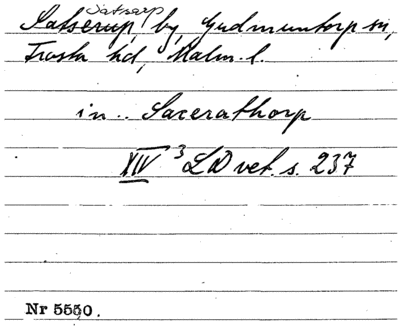 Satsarp
Satserup, by, Gudmuntorp sn,
Frosta hd, Malm. l.
in .. Sacerathorp
XIV 3 LD vet. s. 237
Nr 5550.